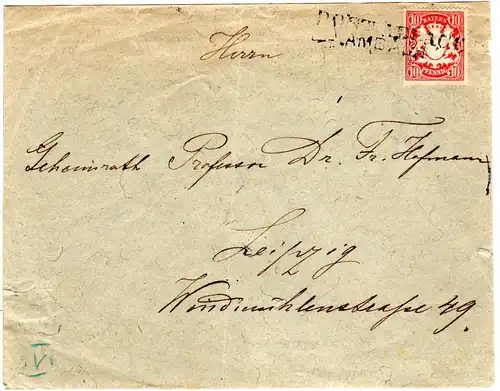 BAYERN
10 10
PFENNIG
10 10
Herrn
Geheimrath Professor Dr. Fr. Hofmann
Leipzig
Windmühlenstraße 49.
V